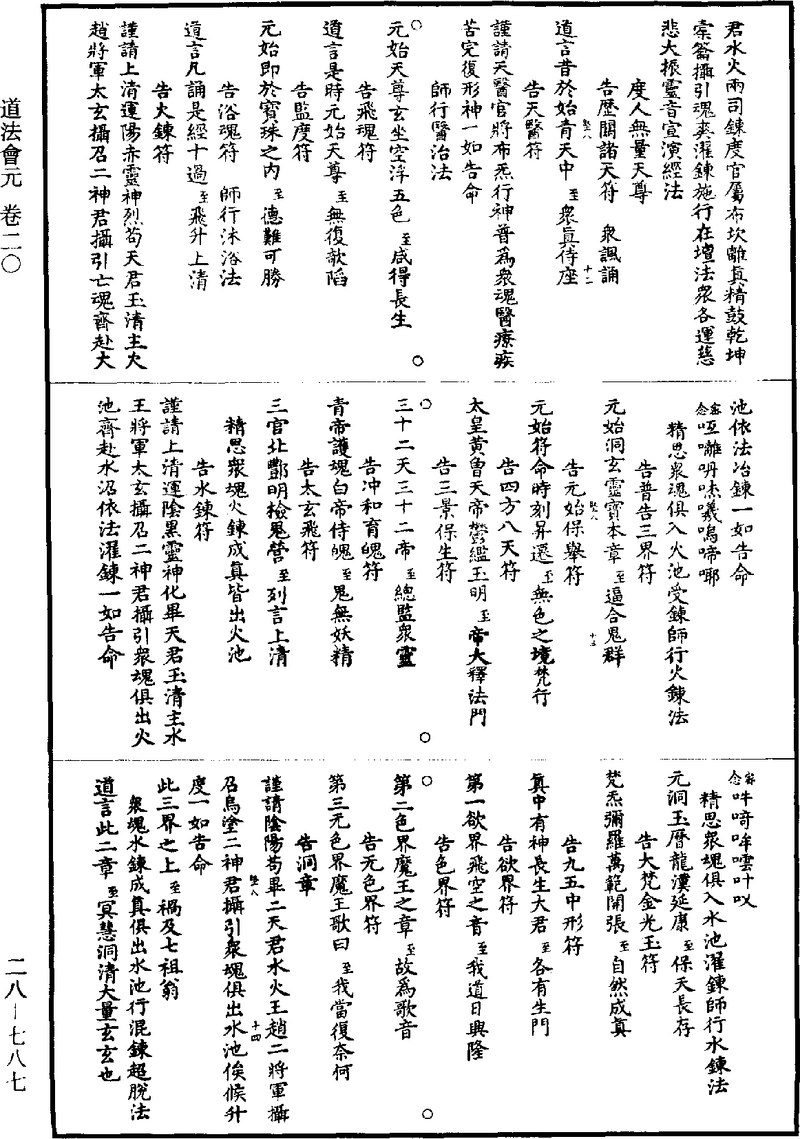 君水火兩司鍊度官屬布坎離真精鼓乾坤
橐籥攝引魂爽濯鍊施行在壇法衆各運慈
悲大振靈音宣演經法
度人無量天尊
告歷關諸天符　衆諷誦
道言昔於始青天中至衆真侍座
告天醫符
謹請天醫官將布炁行神普爲衆魂醫療疾
苦完復形神一如告命
師行醫治法
元始天尊玄坐空浮五色至咸得長生
告飛魂符
道言是時元始天尊至無復歇陷
告監度符
元始即於寶珠之內至德難可勝
告浴魂符　師行沐浴法
道言凡誦是經十過至飛升上清
告火鍊符
謹請上清運陽赤靈神烈苟天君玉清主火
趙將軍太玄攝召二神君攝引亡魂齊赴大
池依法冶鍊一如告命
密念
精思衆魂俱入火池受鍊師行火鍊法
告普告三界符
元始洞玄靈寶本章至逼合鬼群
告元始保舉符
元始符命時刻昇遷至無色之境梵行
告四方八天符
太皇黃曾天帝鬱繿玉明至帝大釋法門
告三景保生符
三十二天三十二帝至總監衆靈
告冲和育魄符
青帝護魂白帝侍魄至鬼無妖精
告太玄飛符
三官北酆明檢鬼營至列言上清
精思衆魂火鍊成真皆出火池
告水鍊符
謹請上清運陰黑靈神化畢天君玉清主水
王將軍太玄攝召二神君攝引衆魂俱出火
池齊赴水沼依法濯鍊一如告命
密念
精思衆魂俱入水池濯鍊師行水鍊法
元洞玉曆龍漢延康至保天長存
告大梵金光玉符
梵炁彌羅萬範開張至自然成真
告九五中形符
真中有神長生大君至各有生門
告欲界符
第一欲界飛空之音至我道日興隆
告色界符
第二色界魔王之章至故爲歌音
告无色界符
第三无色界魔王歌曰至我當復奈何
告洞章
謹請陰陽苟畢二天君水火王趙二將軍攝
召烏塗二神君攝引衆魂俱出水池俟候升
度一如告命
此三界之上至禍及七祖翁
衆魂水鍊成真俱出水池行混鍊超脫法
道言此二章至冥慧洞清大量玄玄也
道法會元　卷二〇
二八—七八七